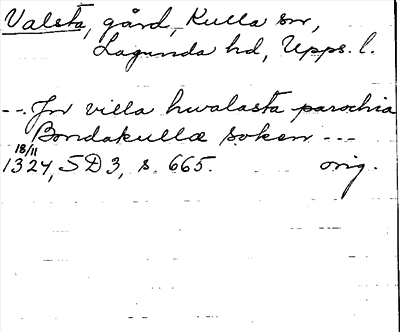 Valsta, gård, Kulla sn,
Lagunda hd, Upps. l.
-- Jn villa hwalasta parochia
Bondakulla soken ---
18/11
1324, SD3, s. 665. orig.